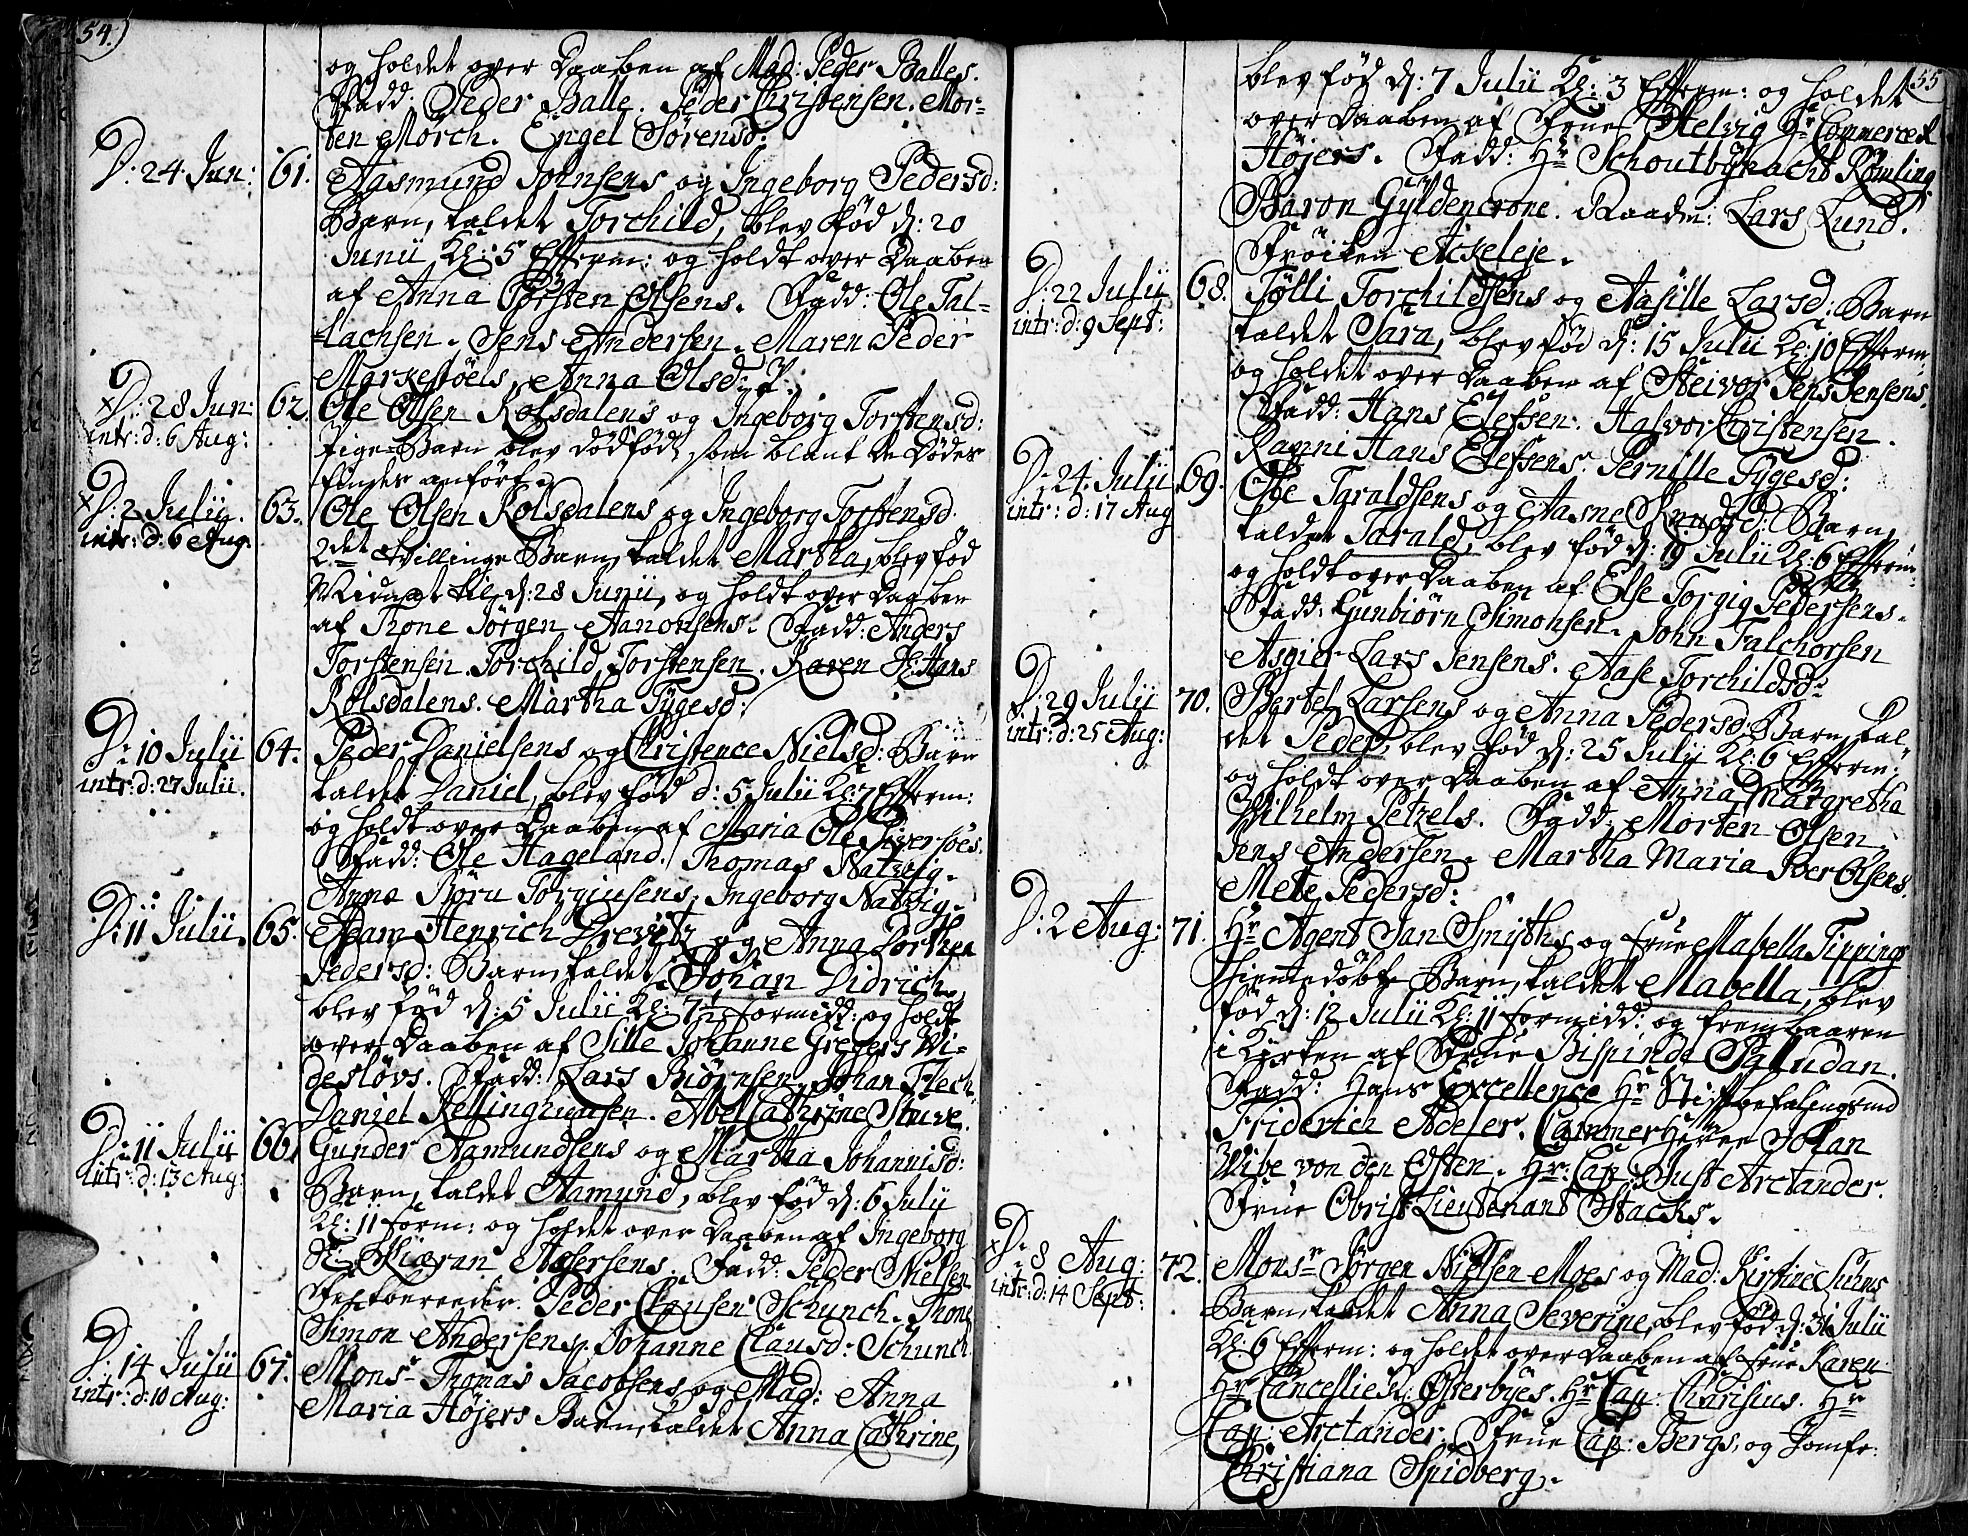 54.)
og holdet over Daaben af Mad: Peder Balles.
Fadd: Peder Balle. Peder Christensen. Mor-
ten Mörch. Engel Sörensd:
D: 24 Jun: 61. Aasmund Johnsens og Ingeborg Pedersd:
Barn, kaldet Torchild, blev fød d: 20
Junii Kl: 5 Efterm: og holdt over Daaben
af Anna Torsten Olsens. Fadd: Ole Fal-
lachsen. Jens Andersen. Maren Peder
Markestöels, Anna Olsd:
x D: 28 Jun: 62. Ole Olsen Rolsdalens og Ingeborg Torstensd:
intr: d: 6 Aug: Pige-Barn blev dödföd, som blant de Döde
findes anfört.
x D: 2 Julii. 63. Ole Olsen Rolsdalens og Ingeborg Torstensd.
intr: d: 6 Aug. 2det Tvillinge Barn, kaldet Martha, blev fød
Midnat til d: 28 Junii, og holdt over Daaben
af Thone Jörgen Aanonsens. Fadd: Anders
Torstensen. Torchild Torstensen. Karen Hans
Rolsdalens. Martha Tygesd:
D: 10 Julii 64. Peder Danielsens og Christence Nielsd: Barn
intr: d: 27 Julii. kaldet Daniel, blev fød d: 5 Julii Kl: 7 Efterm:
og holdt over Daaben af Maria Ole Siversöes.
Fadd: Ole Hageland. Thomas Natvig.
Anna Jöru Torgiusens, Ingeborg Natvig.
D: 11 Julii. 65. Adam Henrich Drevitz og Anna Dorthea
Pedersd: Barn, kaldet Johan Didrich,
blev fød d: 5 Julii Kl: 7½ formidd: og holdt
over Daaben af Sille Johanne Gregers Vi-
deslövs. Fadd: Lars Biörnsen, Johan Flech.
Daniel Kellinghuusen. Abel Cathrine Stuve.
D: 11 Julii 66. Gunder Aamundsens og Martha Johannisd:
intr: d: 13 Aug: Barn, kaldet Aamund, blev fød d: 6 Julii
Kl: 11 form: og holdet over Daaben af Ingeborg
Kiæran Assersens. Fadd: Peder Nielsen
Feldbereeder. Peder Clausen Schunch. Thone
Simon Andersens. Johanne Clausd: Schunch.
D: 14 Julii 67. Monsr Thomas Jacobsens og Mad: Anna
intr: d: 10 Aug: Maria Höjers Barn, kaldet Anna Cathrine,
55
blev fød d: 7 Julii Kl: 3 Efterm: og holdet
over Daaben af Frue Helvig Hr Commerce R
Höjers. Fadd: Hr Schoutbynacht Römling
Baron Gyldencrone. Raadm: Lars Lund.
Fröiken Ackeleje.
D: 22 Julii 68. Tölli Torchildsens og Aasille Larsd: Barn
intr: d: 9 Sept: kaldet Sara, blev fød d: 15 Julii Kl: 10 Efterm:
og holdet over Daaben af Steivor Jens Jensens.
Fadd: Hans Elefsen. Halvor Christensen.
Ranni Hans Elefsens. Pernille Tygesd:
D: 24 Julii 69. Ole Taraldsens og Aasne Knudsd: Barn,
intr: d: 17 Aug kaldet Tarald, blev fød d: 19 Julii Kl: 6 Efterm:
og holdt over Daaben af Else Torgig Pedersens.
Fadd: Gunbiörn Simonsen. John Falchorsen
Asgier Lars Jensens. Aase Torchildsd:
D: 29 Julii 70. Bertel Larsens og Anna Pedersd: Barn, kal-
intr: d: 25 Aug: det Peder, blev fød d: 25 Julii Kl: 6 Efterm:
og holdt over Daaben af Anna Margretha
Wilhelm Petzels. Fadd: Morten Olsen,
Jens Andersen. Martha Maria Iver Olsens.
Mete Pedersd:
D: 2 Aug: 71. Hr Agent Jan Smyths og Frue Mabella Tippings
hiemmedöbte Barn, kaldet Mabella, blev
fød d: 12 Julii Kl: 11 formidd: og frembaaren
i Kirken af Frue Bispinde Paludan.
Fadd: Hans Excellence Hr Stiftbefalingsmd
Friderich Adeler. Cammer Herre Johan
Wibe von den Osten. Hr: Cap: Just Arctander.
Frue Obrist Lieutenant Stacks.
x D: 8 Aug: 72. Monsr Jörgen Nielsen Moes og Mad: Kirstine Suhms
intr: d: 14 Sept: Barn, kaldet Anna Severine, blev fød d: 31 Julii
Kl: 6 Efterm: og holdet over Daaben af Frue Karen
Hr Cancellier: Österbyes. Hr Cap: Charisius. Hr
Cap: Arctander. Frue Cap: Bergs, og Jomfr:
Christiana Spidberg.